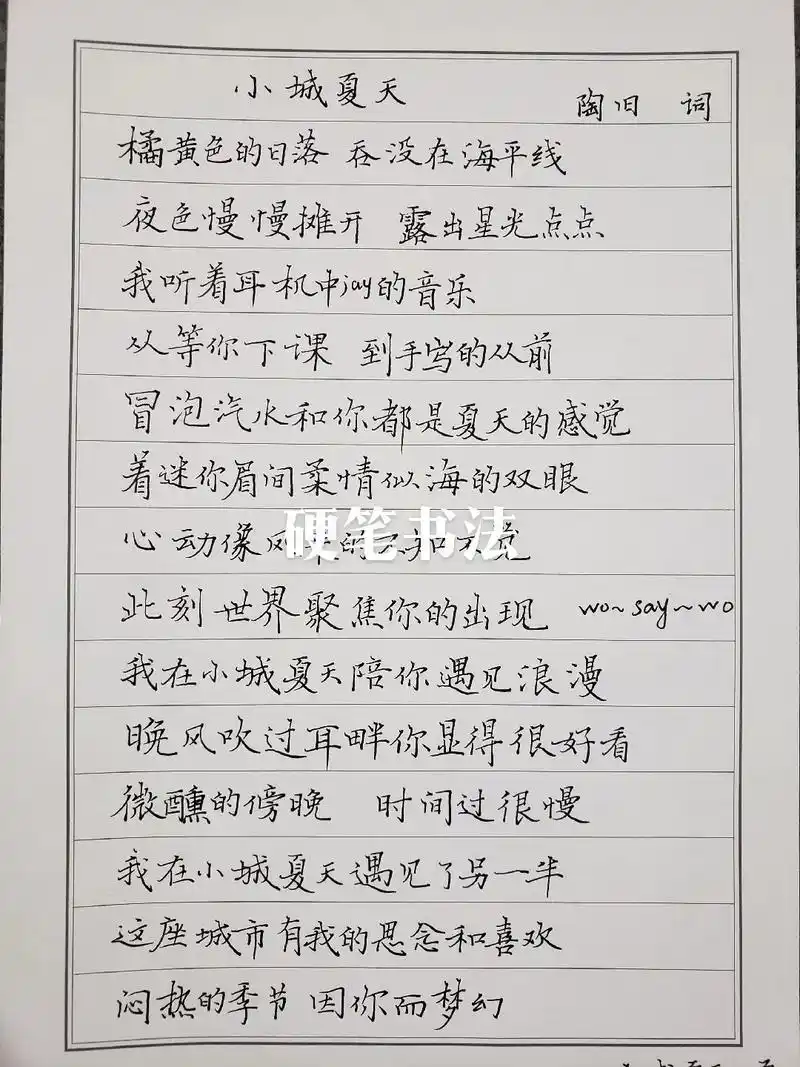 小城夏天
陶旧 词
橘黄色的日落 吞没在海平线
夜色慢慢摊开 露出星光点点
我听着耳机中jay的音乐
从等你下课 到手写的从前
冒泡汽水和你都是夏天的感觉
着迷你眉间柔情似海的双眼
心动像风
不觉
硬笔书法
此刻世界聚焦你的出现 wo~say~wo
我在小城夏天陪你遇见浪漫
晚风吹过耳畔你显得很好看
微醺的傍晚 时间过很慢
我在小城夏天遇见了另一半
这座城市有我的思念和喜欢
闷热的季节 因你而梦幻